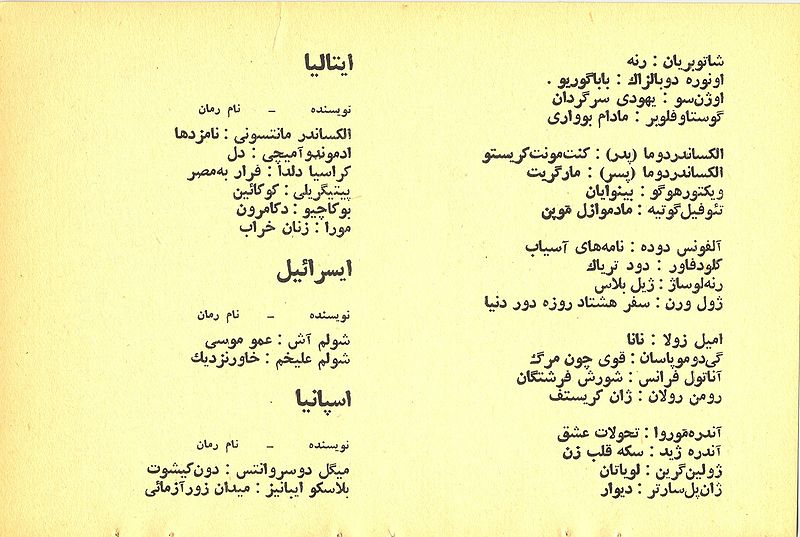 شاتوبریان : رنه
اونوره دوبالزاك : باباگوریو .
اوژن‌سو : یهودی سرگردان
گوستاوفلوبر : مادام بوواری
الکساندردوما (پدر) : کنت‌مونت‌کریستو
الکساندردوما (پسر) : مارگریت
ویکتورهوگو : بینوایان
تئوفیل‌گوتیه : مادموازل مُوپن
آلفونس دوده : نامه‌های آسیاب
کلودفاور : دود تریاك
رنه‌لوساژ : ژیل بلاس
ژول ورن : سفر هشتاد روزه دور دنیا
امیل زولا : نانا
گی‌دوموپاسان : قوی چون مرگ
آناتول فرانس : شورش فرشتگان
رومن رولان : ژان کریستف
آندره‌مَوروا : تحولات عشق
آندره ژید : سکه قلب زن
ژولین‌گرین : لویاتان
ژان‌پل‌سارتر : دیوار
ایتالیا
نویسنده – نام رمان
الکساندر مانتسونی : نامزدها
ادموندوآمیچی : دل
کراسیا دلدا : فرار به‌مصر
پیتیگریلی : کوکائین
بوکاچیو : دکامرون
مورا : زنان خراب
ایسرائیل
نویسنده – نام رمان
شولم آش : عمو موسی
شولم علیخم : خاورنزدیك
اسپانیا
نویسنده – نام رمان
میگل دوسروانتس : دون‌کیشوت
بلاسکو ایبانیز : میدان زورآزمائی